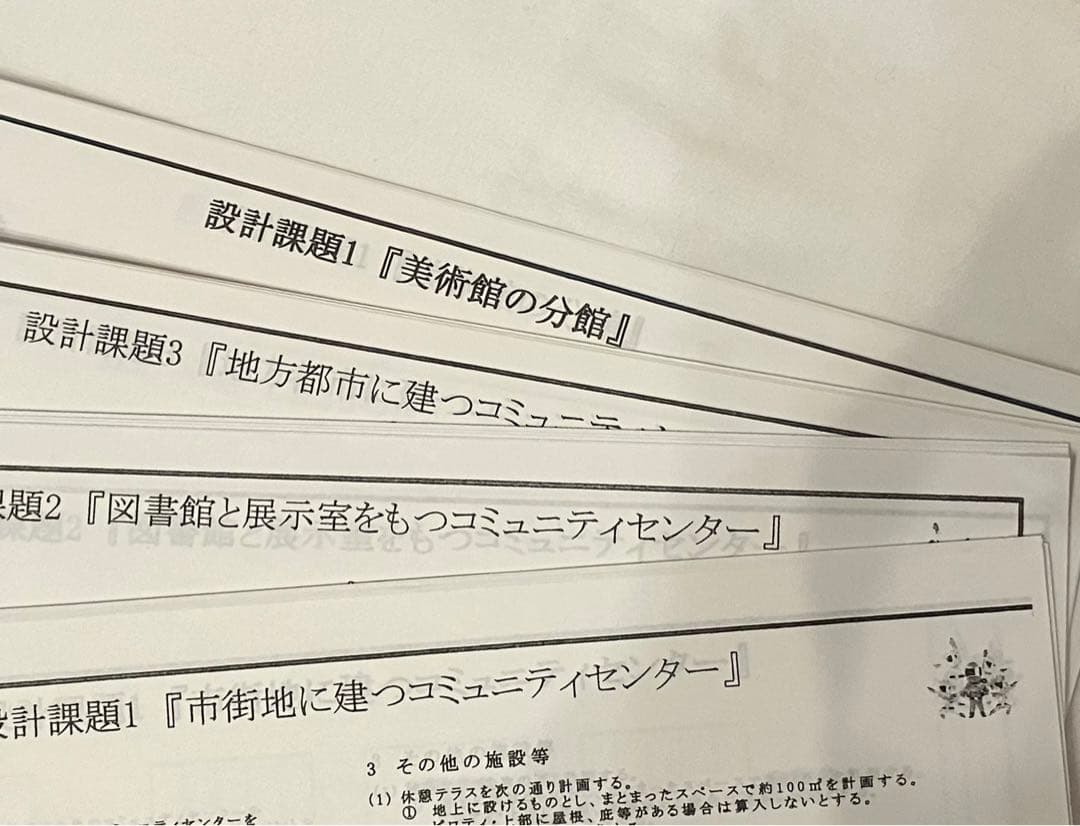 設計課題1『美術館の分館』
設計課題3『地方都市に建つコミュニティ
課題2『図書館と展示室をもつコミュニティセンター』
設計課題1『市街地に建つコミュニティセンター』
3 その他の施設等
(1) 休憩テラスを次の通り計画する。
① 地上に設けるものとし、まとまったスペースで約100㎡を計画する。
ピロティ・上部に屋根、庇等がある場合は算入しないとする。
コミュニティセンターを